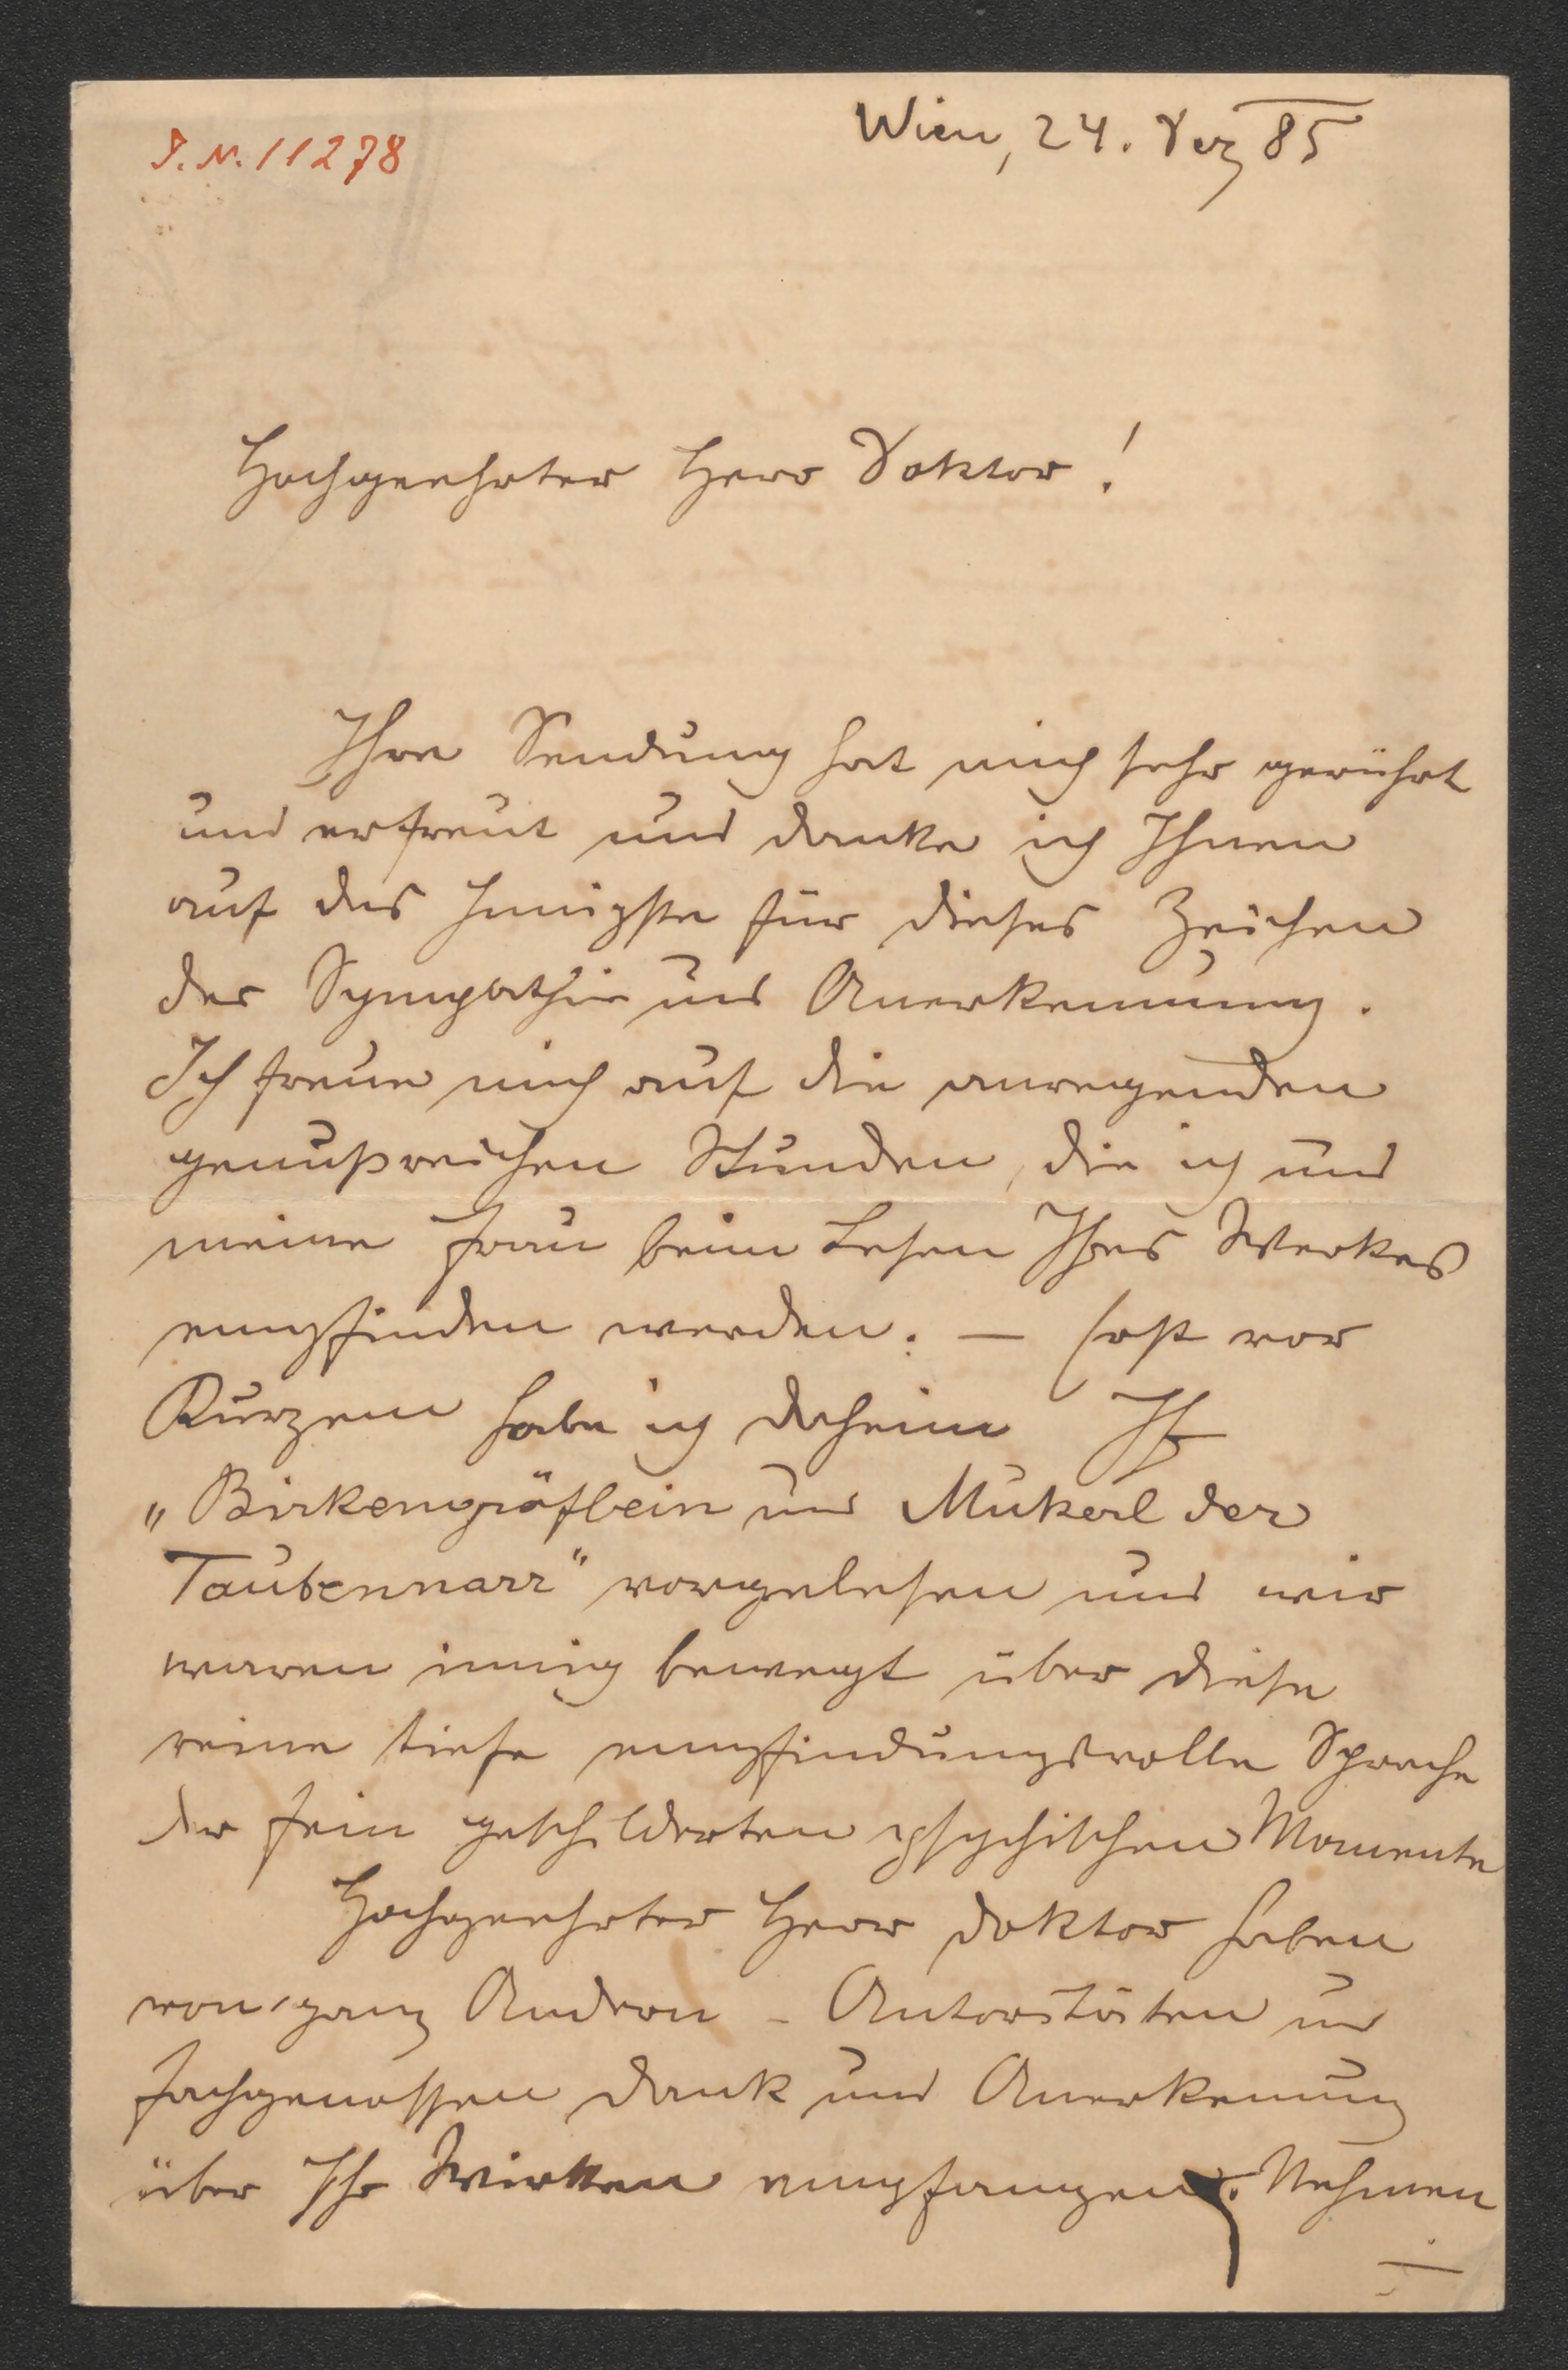 I. N. 11278
Wien, 24. Dez 85
Hochgeehrter Herr Doktor!
Ihre Sendung hat mich sehr gerührt
und erfreut und danke ich Ihnen
auf das Innigste für dieses Zeichen
der Sympathie und Anerkennung.
Ich freue mich auf die anregenden
genußreichen Stunden, die ich und
meine Frau beim Lesen Ihres Werkes
empfinden werden. — Erst vor
Kurzem habe ich daheim Ihr
„Birkengräflein und Mukerl der
Taubennarr" vorgelesen und wir
waren innig bewegt über diese
reine tiefe empfindungsvolle Sprache
der fein geschilderten psychischen Momente
Hochgeehrter Herr Doktor haben
von ganz Andern - Autoritäten und
Fachgenossen Dank und Anerkenung
über Ihr Wirken empfangen. Nehmen